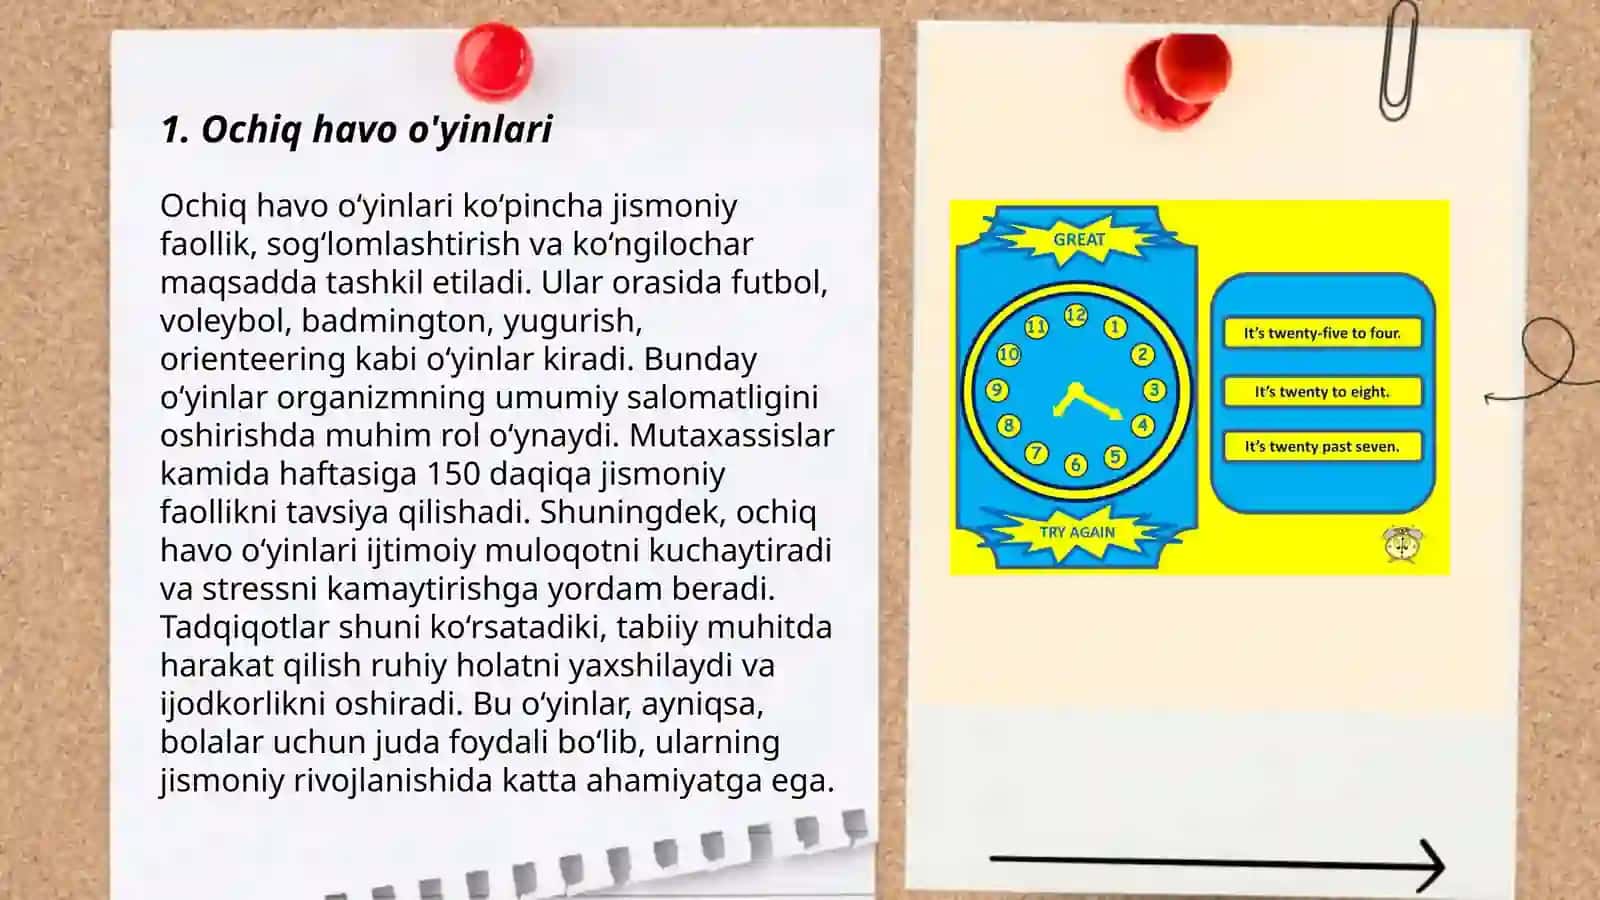 1. Ochiq havo o'yinlari
Ochiq havo o‘yinlari ko‘pincha jismoniy
faollik, sog‘lomlashtirish va ko‘ngilochar
maqsadda tashkil etiladi. Ular orasida futbol,
voleybol, badmington, yugurish,
orienteering kabi o‘yinlar kiradi. Bunday
o‘yinlar organizmning umumiy salomatligini
oshirishda muhim rol o‘ynaydi. Mutaxassislar
kamida haftasiga 150 daqiqa jismoniy
faollikni tavsiya qilishadi. Shuningdek, ochiq
havo o‘yinlari ijtimoiy muloqotni kuchaytiradi
va stressni kamaytirishga yordam beradi.
Tadqiqotlar shuni ko‘rsatadiki, tabiiy muhitda
harakat qilish ruhiy holatni yaxshilaydi va
ijodkorlikni oshiradi. Bu o‘yinlar, ayniqsa,
bolalar uchun juda foydali bo‘lib, ularning
jismoniy rivojlanishida katta ahamiyatga ega.
GREAT
12
11
1
10
2
9
3
8
4
7
5
6
TRY AGAIN
It’s twenty-five to four.
It’s twenty to eight.
It’s twenty past seven.